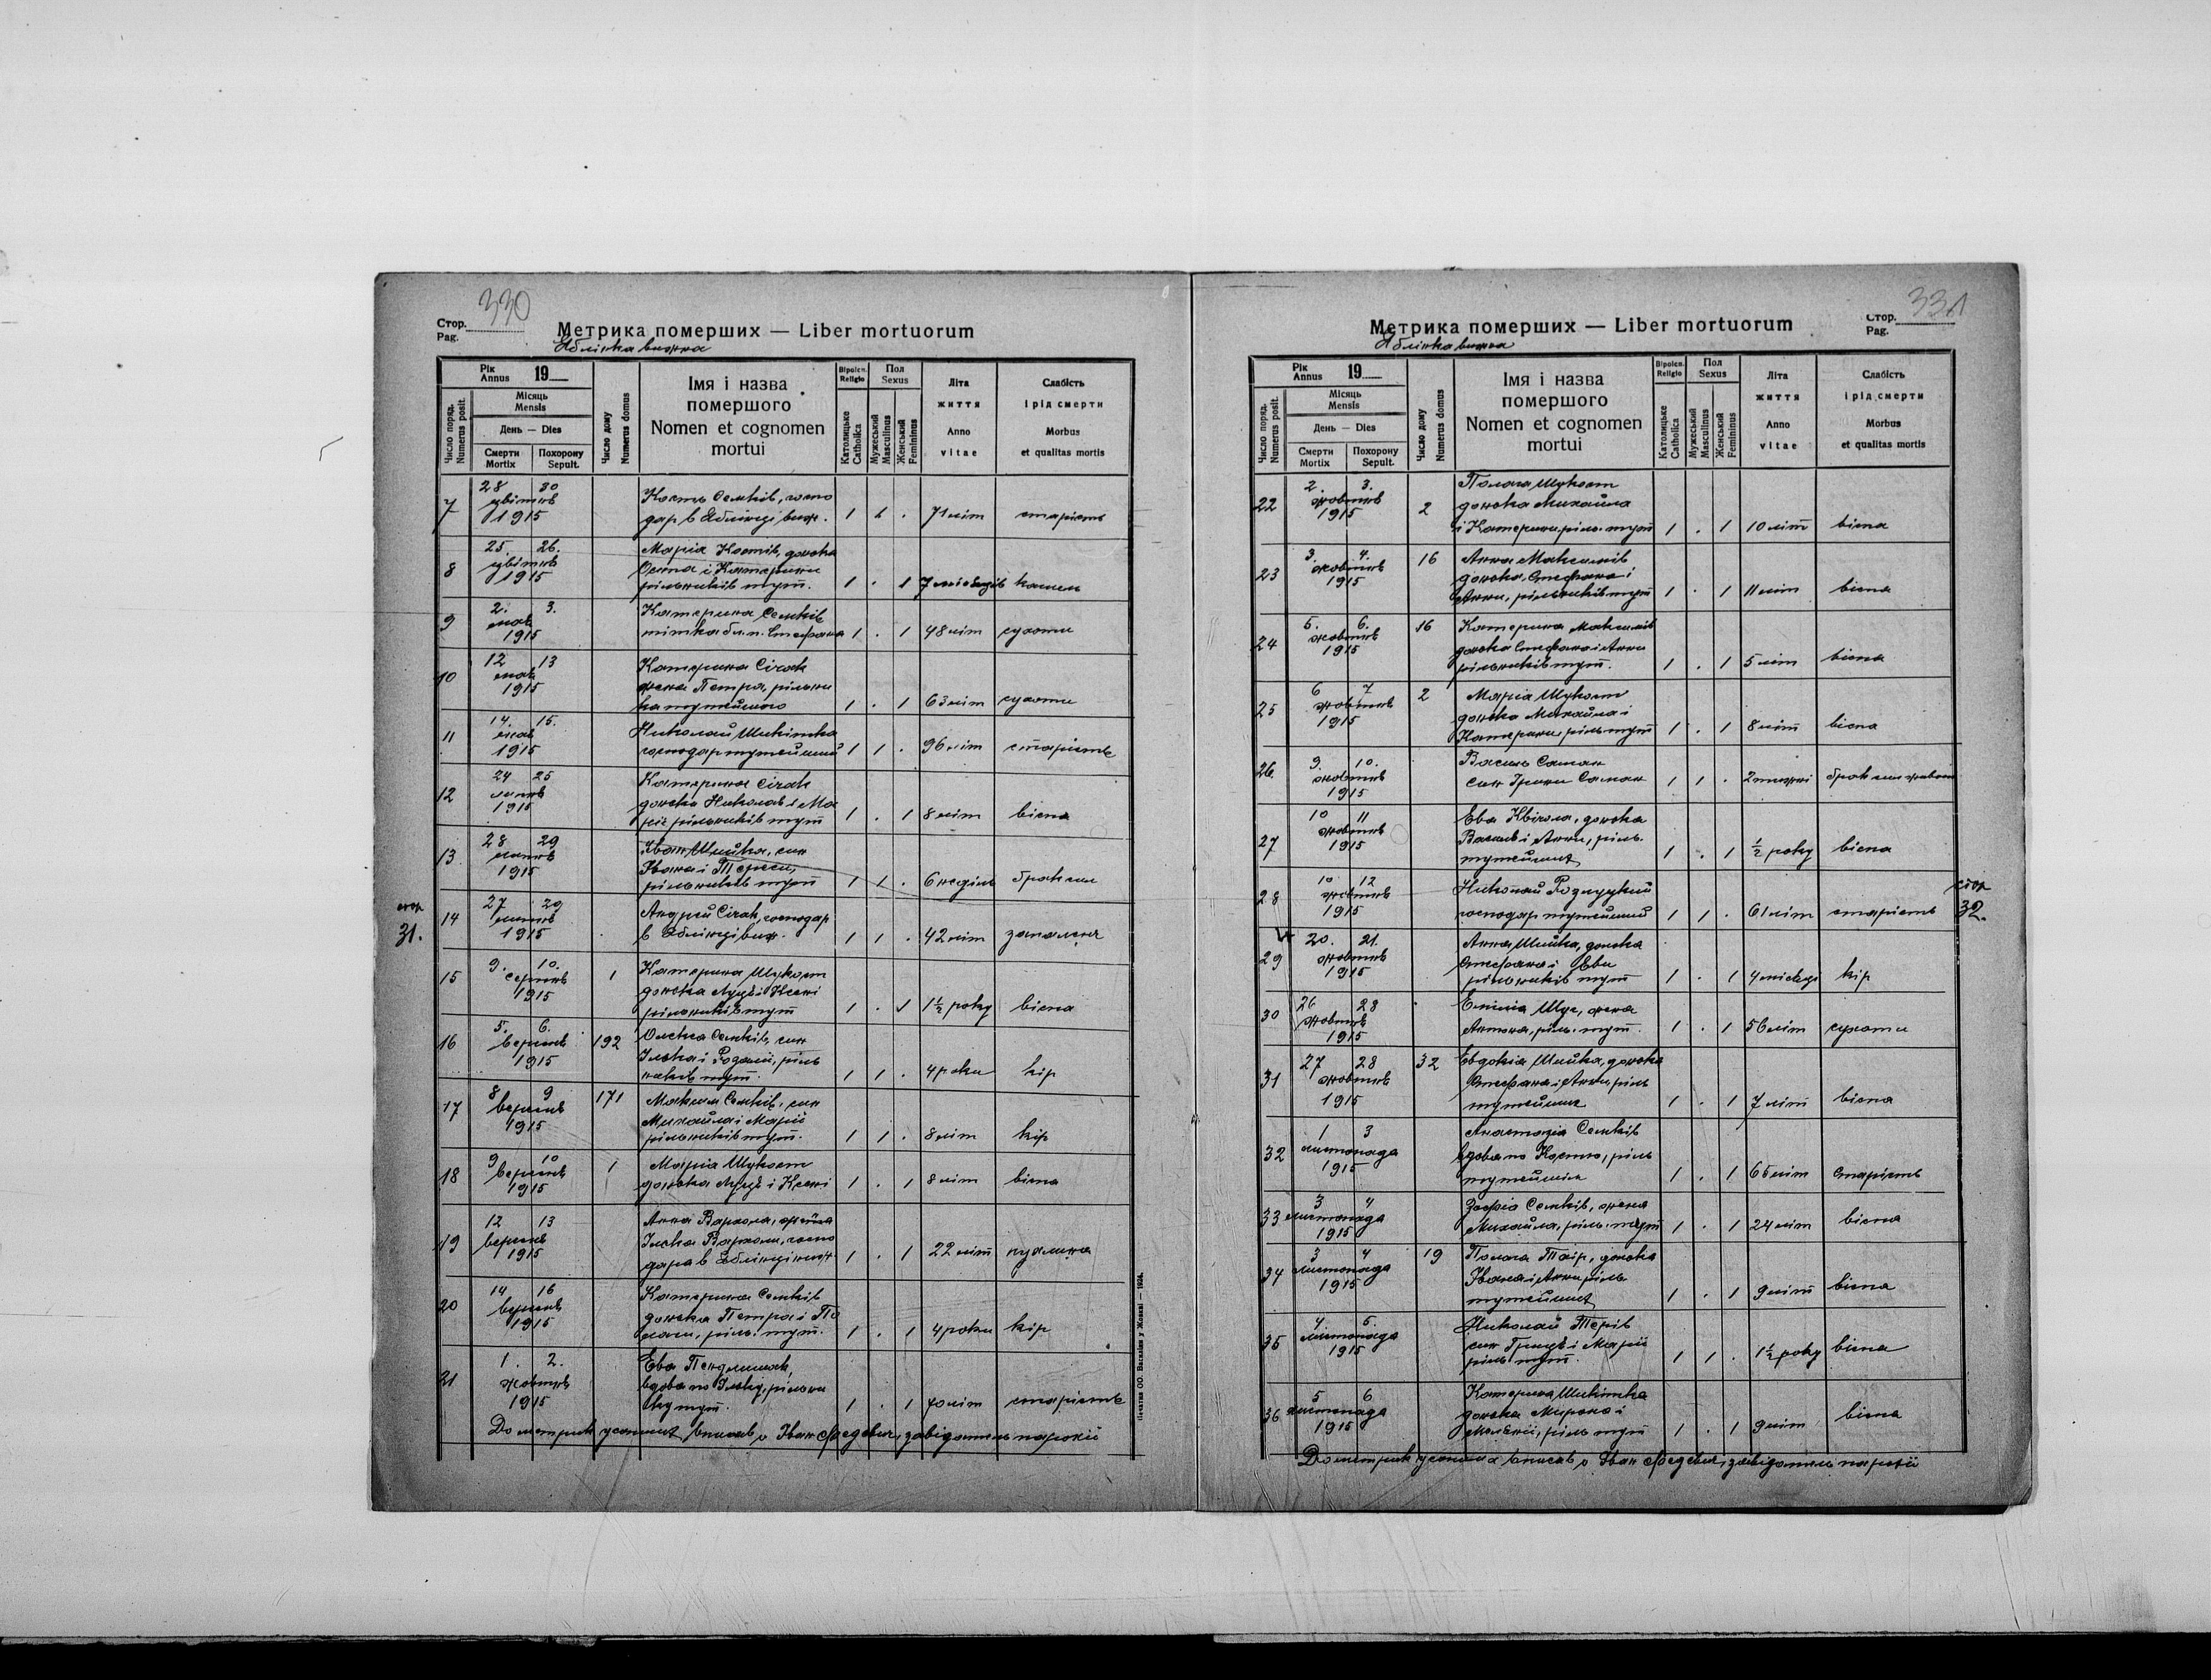 330
Стор.
Pag.
Метрика померших — Liber mortuorum
Яблінка вижна
Рік
Annus 19
Число поряд.
Numerus posit.
Місяць
Mensis
День — Dies
Смерти
Mortix
Похорону
Sepult.
Число дому
Numerus domus
Імя і назва
помершого
Nomen et cognomen
mortui
Віроісп.
Religio
Католицьке
Catholica
Пол
Sexus
Мужеський
Masculinus
Женський
Femininus
Літа
життя
Anno
vitae
Слабість
і рід смерти
Morbus
et qualitas mortis
7 28 30 цвітня 1915
Кость Семків, госпо
дар в Яблінці виж. 1 1 . 71 літ старість
8 25. 26. цвітня 1915
Марія Костів, донька
і Катерини
рільників тут. 1 . 1 7 місяців кашель
9 2. 3. мая 1915
Катерина Семків
тітка бл. п. Стефана 1 . 1 48 літ сухоти
10 12 13 мая 1915
Катерина Сігак
жена Петра, рільни
ка тутейшого 1 . 1 63 літ сухоти
11 14. 15. мая 1915
Николай Шикітка
господар тутейший 1 1 . 96 літ старість
12 24 25 липня 1915
Катерина Сігак
донька Николая і Ма
рії рільників тут 1 . 1 8 літ віспа
13 28 29 липня 1915
Іван Шийка, син
Івана і Терези,
рільників тут 1 1 . 6 неділь брак сил
14 27 29 липня 1915
Андрій Сігак, господар
в Яблінці виж. 1 1 . 42 літ запаленя
стор
31.
15 9. 10. серпня 1915 1
Катерина Шукост
донька Луця і Ксені
рільників тут 1 . 1 1½ року віспа
16 5. 6. вересня 1915 192
Олекса Семків, син
Ілька і Розалії, ріль
ників тут. 1 1 . 4 роки кір
17 8 9 вересня 1915 171
Максим Семків, син
Михайла і Марії
рільників тут. 1 1 . 8 літ кір
18 9 10 вересня 1915 1
Марія Шукост
донька Луця і Ксені 1 . 1 8 літ віспа
19 12 13 вересня 1915
Анна Вархола, жена
Ілька Вархоли, госпо
дара в Яблінці виж 1 . 1 22 літ пухлина
20 14 16 вересня 1915
Катерина Семків
донька Петра і По
лаги, ріль. тут. 1 . 1 4 роки кір
21 1. 2. жовтня 1915
Ева
вдова по Ільку, рільни
ку тут. 1 . 1 70 літ старість
До метрик усопших вписав о Іван Федевич, завідатель парохії
Печатня ОО. Василіян у Жовкві — 1926.
331
Стор.
Pag.
Метрика померших — Liber mortuorum
Яблінка вижна
Рік
Annus 19
Число поряд.
Numerus posit.
Місяць
Mensis
День — Dies
Смерти
Mortix
Похорону
Sepult.
Число дому
Numerus domus
Імя і назва
помершого
Nomen et cognomen
mortui
Віроісп.
Religio
Католицьке
Catholica
Пол
Sexus
Мужеський
Masculinus
Женський
Femininus
Літа
життя
Anno
vitae
Слабість
і рід смерти
Morbus
et qualitas mortis
22 2. 3. жовтня 1915 2
Полага Шукост
донька Михайла
і Катерини, ріль. тут 1 . 1 10 літ віспа
23 3. 4. жовтня 1915 16
Анна Максимів
донька Стефана і
Анни, рільників тут 1 . 1 11 літ віспа
24 5. 6. жовтня 1915 16
Катерина Максимів
донька Стефана і Анни
рільників тут. 1 . 1 5 літ віспа
25 6 7 жовтня 1915 2
Марія Шукост
донька Михайла і
Катерини, ріль. тут 1 . 1 8 літ віспа
26. 9. 10. жовтня 1915
Василь Саман
син Саман 1 1 . 2 тижні брак сил
27 10 11 жовтня 1915
Ева Квічола, донька
Василя і Анни, ріль.
тутейших 1 . 1 ½ року віспа
28 10 12 жовтня 1915
Николай Розлуцкий
господар тутейший 1 1 . 61 літ старість
стор
32.
29 20. 21. жовтня 1915
Анна Шийка, донька
Стефана і Еви
рільників тут 1 . 1 4 місяці кір
30 26 28 жовтня 1915
Емілія Шуг, жена
Антона, ріль. тут. 1 . 1 56 літ сухоти
31 27 28 жовтня 1915 32
Евдокія Шийка, донька
Стефана і Анни, ріль
тутейших 1 . 1 7 літ віспа
32 1 3 листопада 1915
Анастазія Семків
вдова по Костю, ріль
тутейшім 1 . 1 65 літ старість
33 3 4 листопада 1915
Зофія Семків, жена
Михайла, ріль. тут 1 . 1 24 літ віспа
34 3 4 листопада 1915 19
Полага Таїр, донька
Івана і Анни ріль
тутейших 1 . 1 9 літ віспа
35 4. 5. листопада 1915
Николай Терів
син Гриця і Марії
ріль тут. 1 1 . 1½ року віспа
36 5 6 листопада 1915
Катерина Шикітка
донька Мирона і
Меланії, ріль тут 1 . 1 9 літ віспа
До метрик усопших вписав о Іван Федевич, завідатель парохії